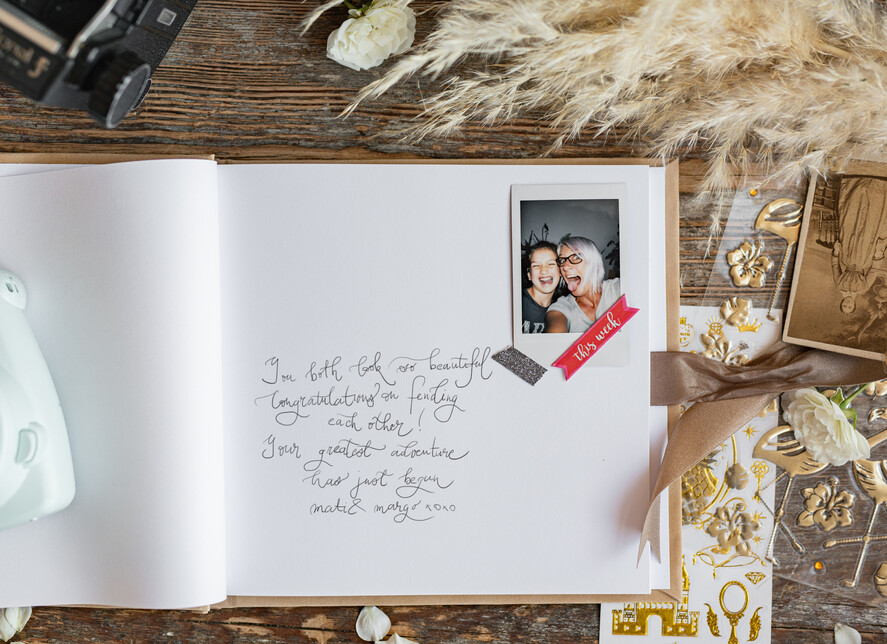 this week
You both look so beautiful
Congratulations on fending
each other!
Your greatest adventure
has just begun
mati & margo xoxo